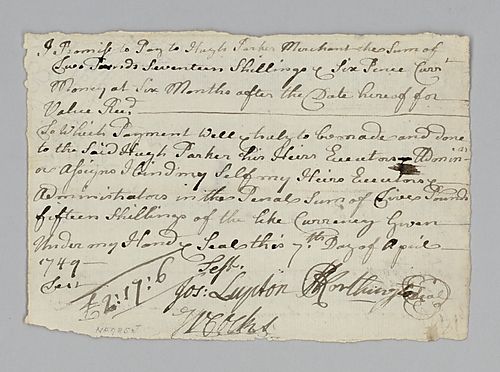 I Promise to Pay to Hugh Parker Merchant the Sum of
Two Pounds Seventeen Shillings & Six Pence Curr.t
Money at Six Months after the Date hereof for
Value Rec.d
To Which Payment Well & truly to be made and done
to the Said Hugh Parker his Heirs Executors Admin
or Assigns I bind my Self my Heirs Executors &
Administrators in the Penal Sum of Five Pounds
fifteen Shillings of the like Currency Given
Under my Hand & Seal this 7th Day of April
1749
Test.
£2:17:6
Jos: Lupton Worthington Seal